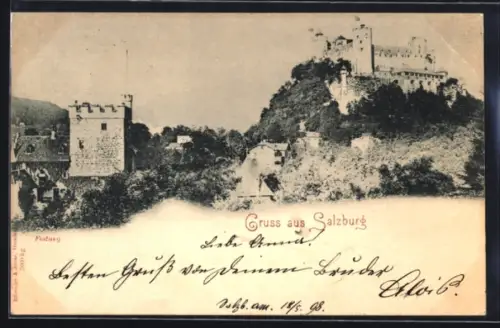 Freyweg
Gruss aus Salzburg
Liebe Anna!
Besten Gruß von Deinem Bruder
Alois.
Salzb. am. 14/5. 98.